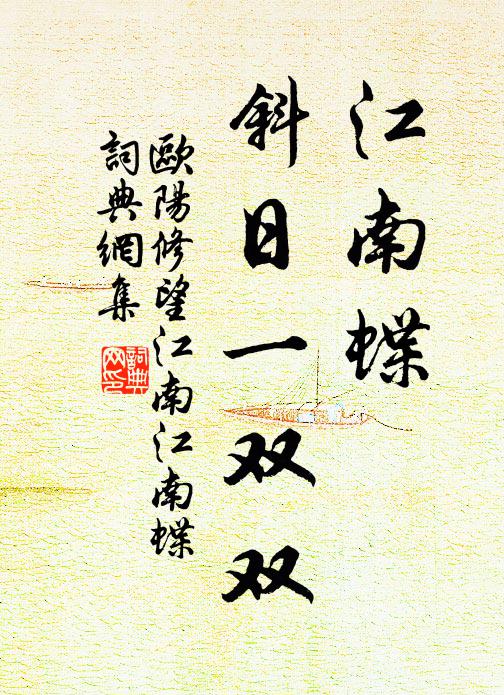 江南蝶
斜日一双双
歐陽修望江南江南蝶
詞典網集
詞典
网印